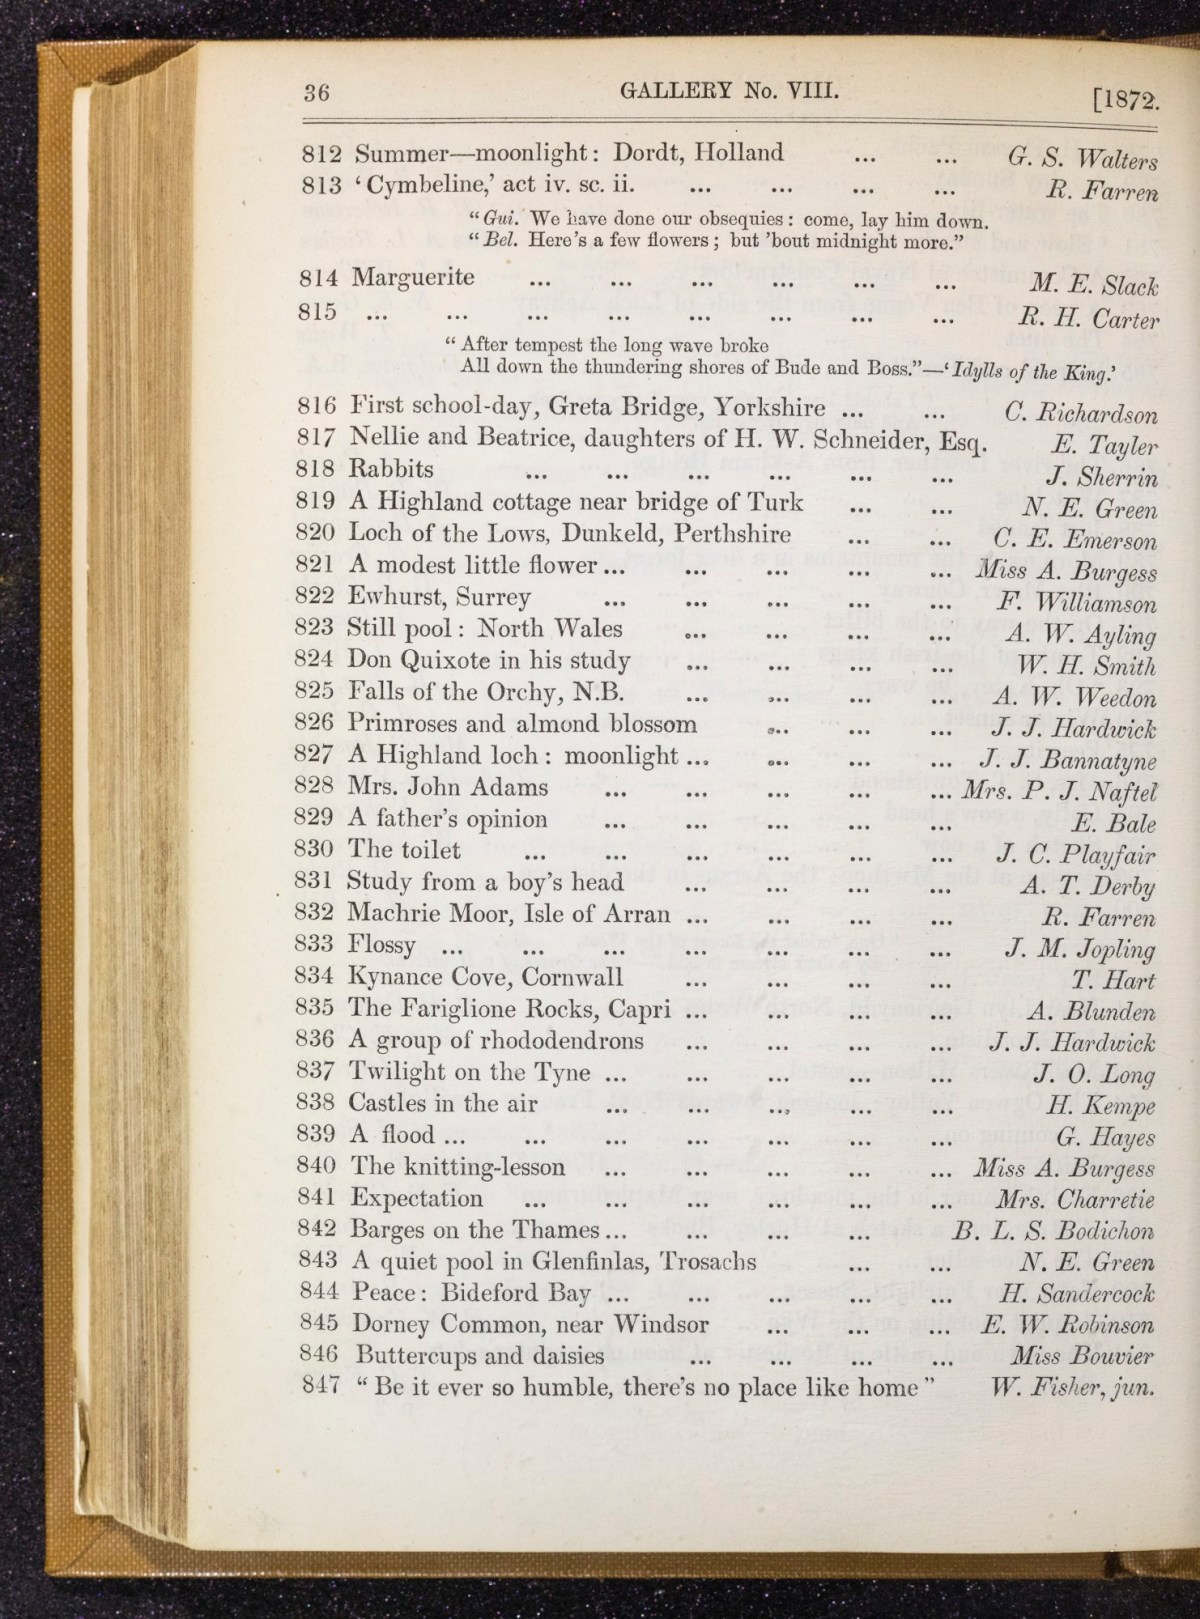 36 GALLERY No. VIII. [1872.
812 Summer—moonlight: Dordt, Holland ... ... G. S. Walters
813 ‘Cymbeline,’ act iv. sc. ii. ... ... ... ... R. Farren
“Gui. We have done our obsequies: come, lay him down.
“Bel. Here’s a few flowers; but ’bout midnight more.”
814 Marguerite ... ... ... ... ... ... M. E. Slack
815 ... ... ... ... ... ... ... ... R. H. Carter
“After tempest the long wave broke
All down the thundering shores of Bude and Boss.”—‘Idylls of the King.’
816 First school-day, Greta Bridge, Yorkshire ... ... C. Richardson
817 Nellie and Beatrice, daughters of H. W. Schneider, Esq. E. Tayler
818 Rabbits ... ... ... ... ... ... J. Sherrin
819 A Highland cottage near bridge of Turk ... ... N. E. Green
820 Loch of the Lows, Dunkeld, Perthshire ... ... C. E. Emerson
821 A modest little flower ... ... ... ... ... Miss A. Burgess
822 Ewhurst, Surrey ... ... ... ... ... F. Williamson
823 Still pool: North Wales ... ... ... ... A. W. Ayling
824 Don Quixote in his study ... ... ... ... W. H. Smith
825 Falls of the Orchy, N.B. ... ... ... ... A. W. Weedon
826 Primroses and almond blossom ... ... ... J. J. Hardwick
827 A Highland loch: moonlight ... ... ... ... J. J. Bannatyne
828 Mrs. John Adams ... ... ... ... ... Mrs. P. J. Naftel
829 A father’s opinion ... ... ... ... ... E. Bale
830 The toilet ... ... ... ... ... ... J. C. Playfair
831 Study from a boy’s head ... ... ... ... A. T. Derby
832 Machrie Moor, Isle of Arran ... ... ... ... R. Farren
833 Flossy ... ... ... ... ... ... ... J. M. Jopling
834 Kynance Cove, Cornwall ... ... ... ... T. Hart
835 The Fariglione Rocks, Capri ... ... ... ... A. Blunden
836 A group of rhododendrons ... ... ... ... J. J. Hardwick
837 Twilight on the Tyne ... ... ... ... ... J. O. Long
838 Castles in the air ... ... ... ... ... H. Kempe
839 A flood ... ... ... ... ... ... ... G. Hayes
840 The knitting-lesson ... ... ... ... ... Miss A. Burgess
841 Expectation ... ... ... ... ... ... Mrs. Charretie
842 Barges on the Thames ... ... ... ... B. L. S. Bodichon
843 A quiet pool in Glenfinlas, Trosachs ... ... N. E. Green
844 Peace: Bideford Bay ... ... ... ... ... H. Sandercock
845 Dorney Common, near Windsor ... ... ... E. W. Robinson
846 Buttercups and daisies ... ... ... ... Miss Bouvier
847 “Be it ever so humble, there’s no place like home” W. Fisher, jun.